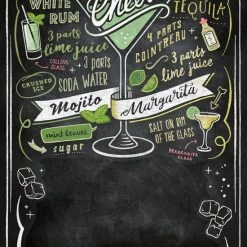 WHITE
RUM
Cheers
TEQUILA
3 parts
lime juice
4 PARTS
COINTREAU
COLLINS
GLASS
3 parts
lime juice
CRUSHED
ICE
3 PARTS
SODA WATER
Mojito
Margarita
mint leaves
SALT ON RIM
OF THE GLASS
sugar
MARGARITA
GLASS